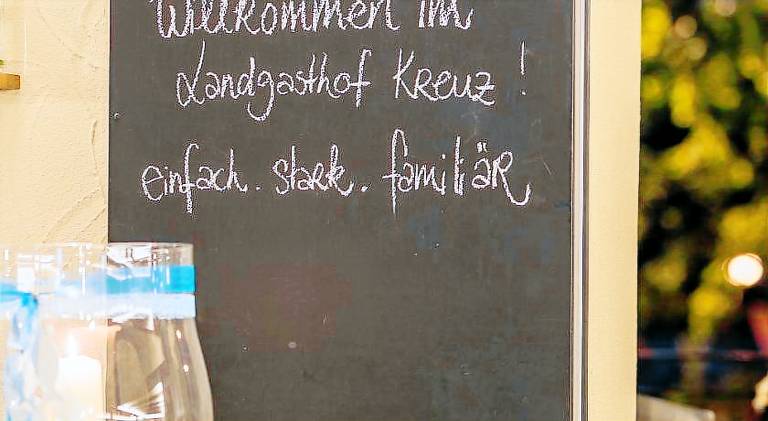 Willkommen im
Landgasthof Kreuz!
einfach. stark. familiär